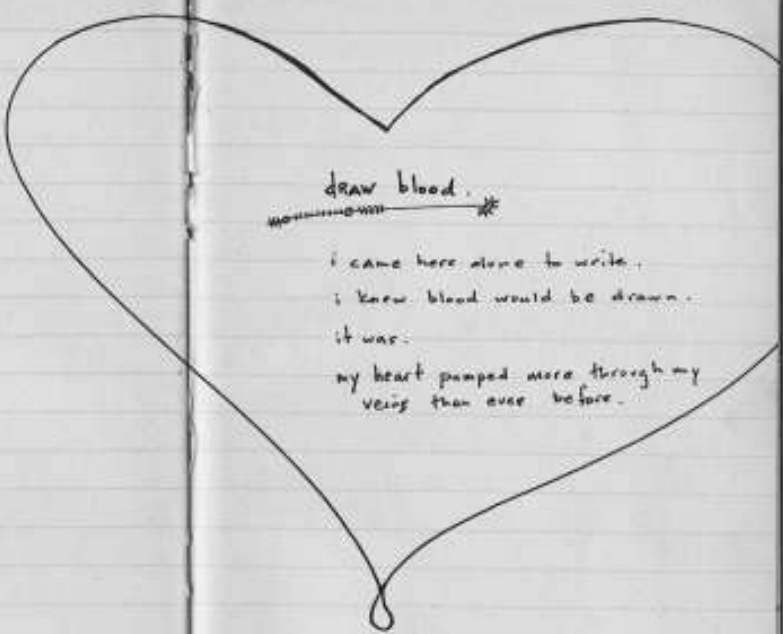 dRAW blood.
i came here alone to write.
i knew blood would be drawn.
it was.
my heart pumped more through my
veins than ever before.